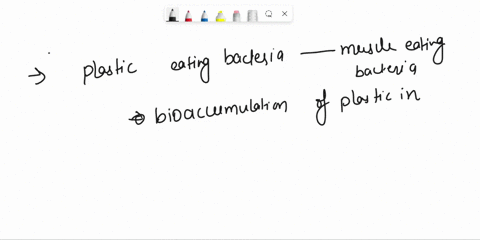 → plastic eating bacteria — muscle eating
bacteria
→ bioaccumulation of plastic in